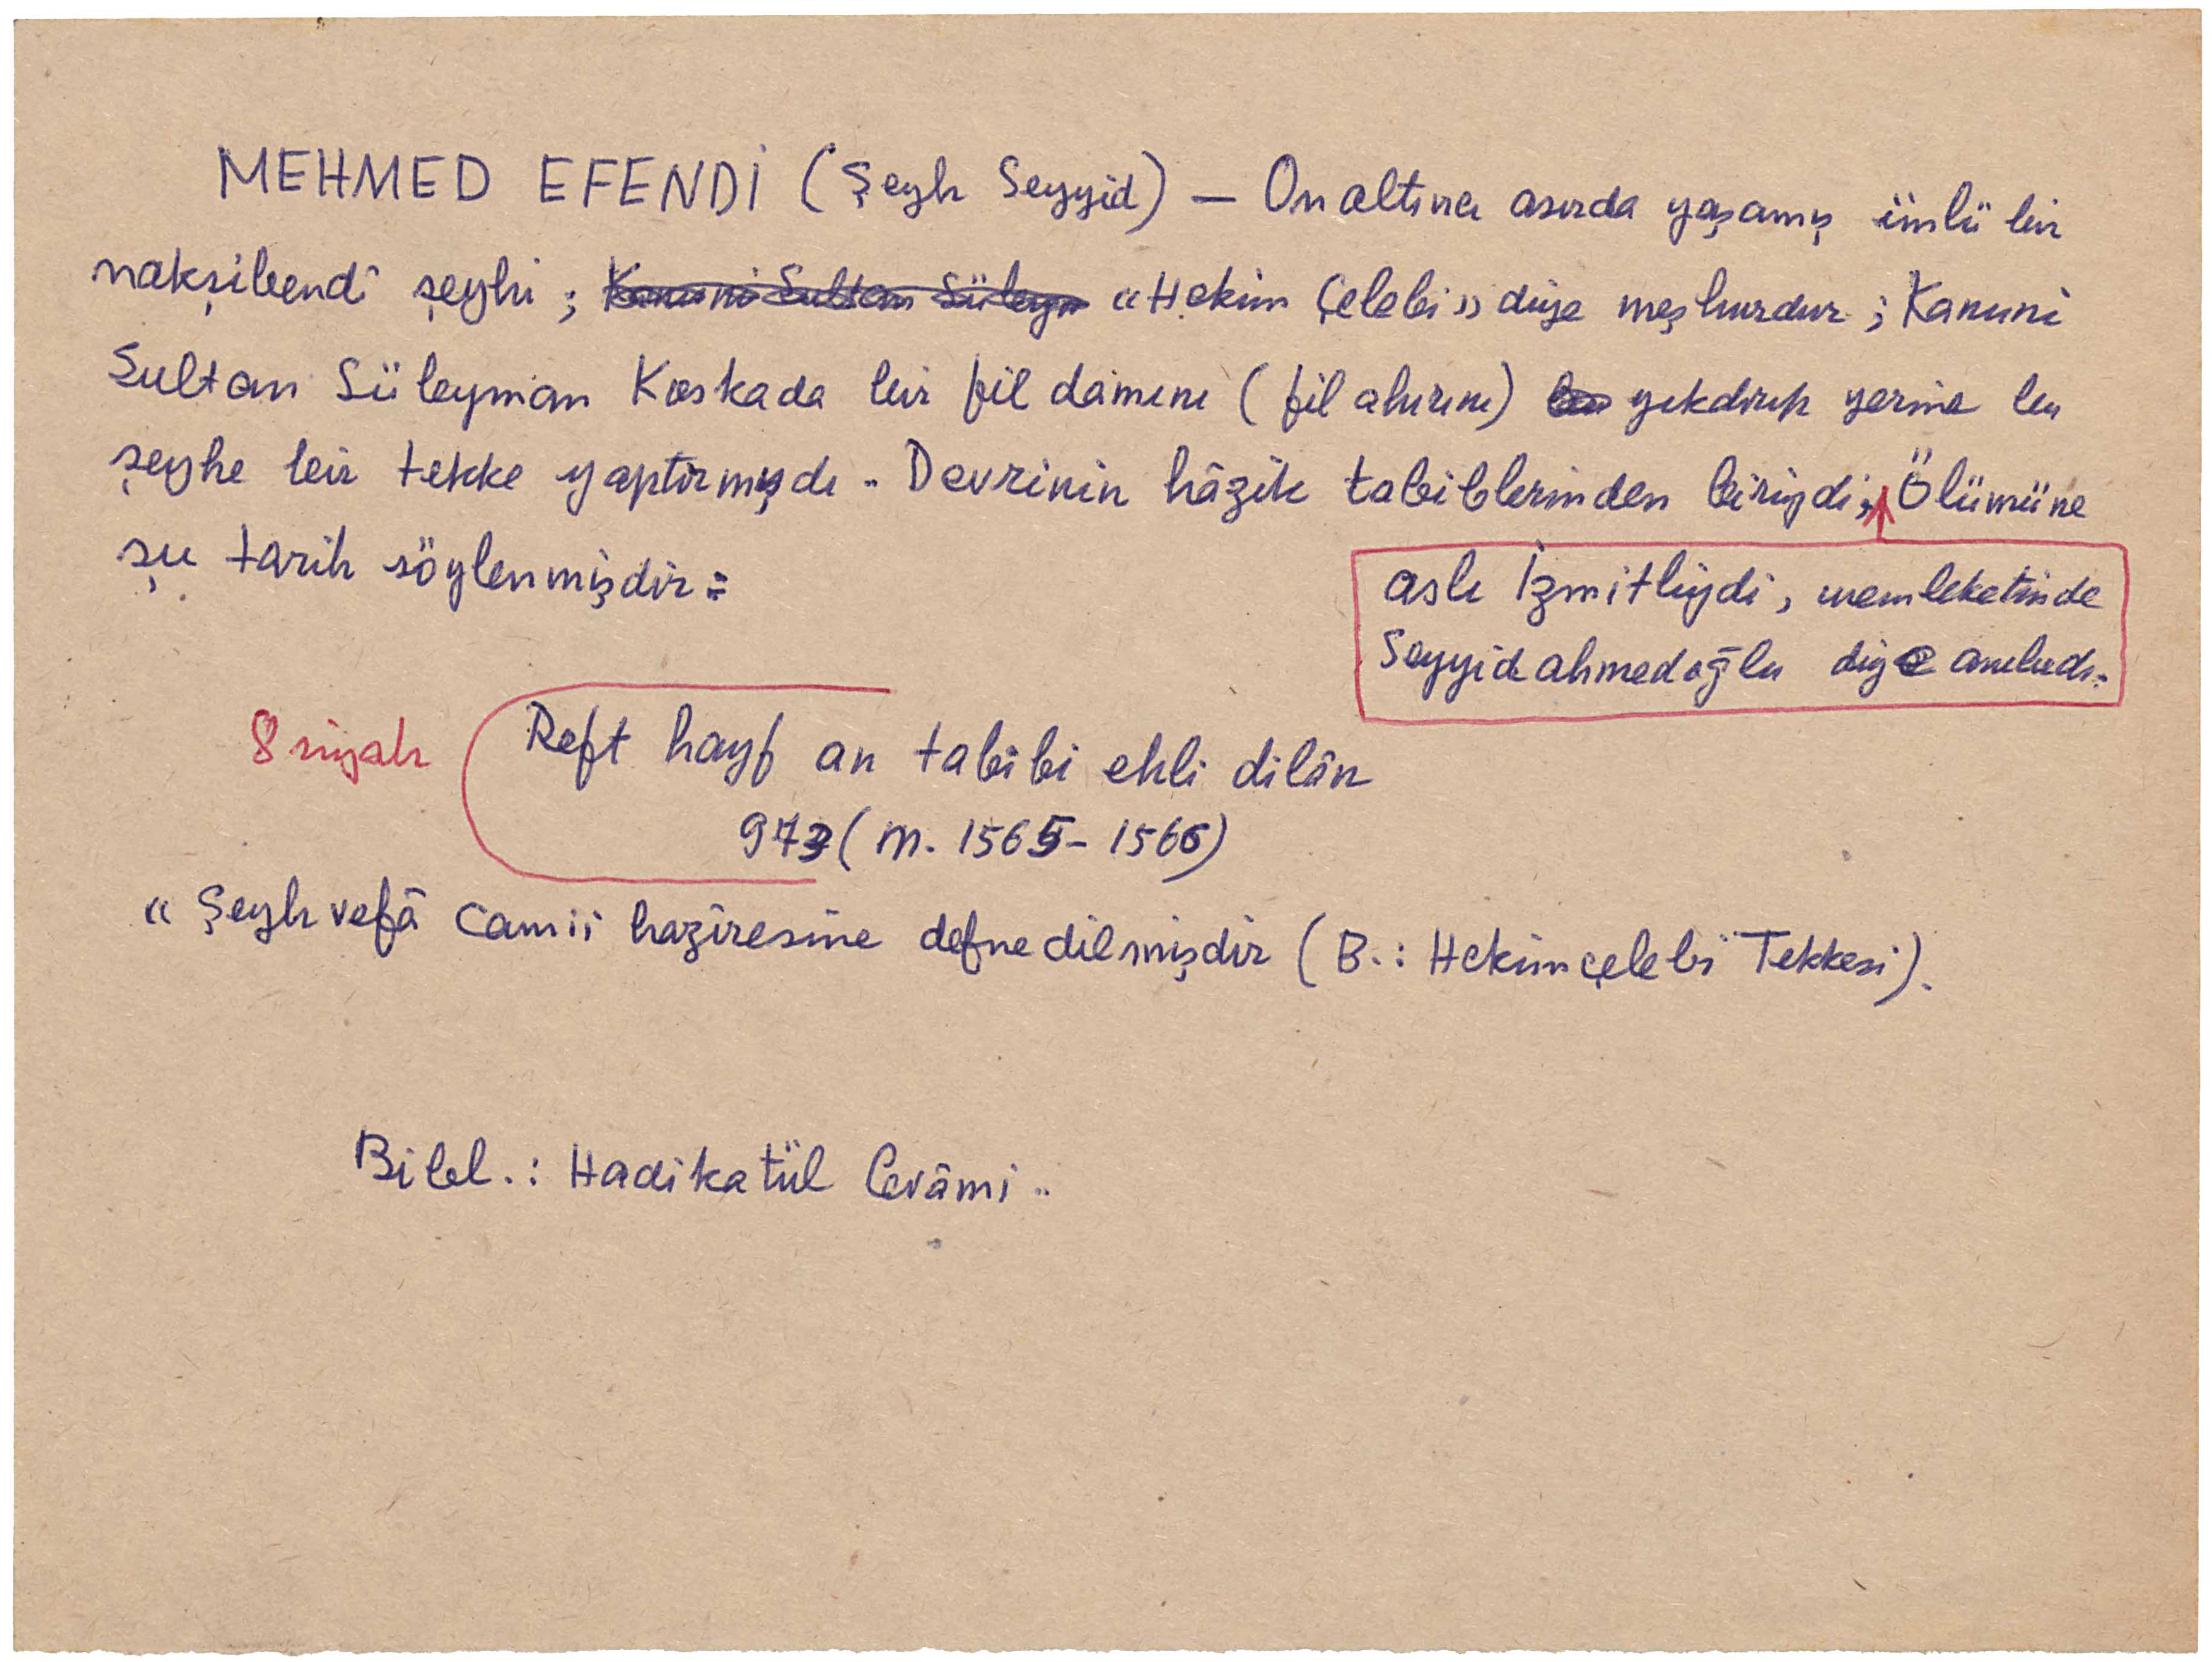 MEHMED EFENDİ (Şeyh Seyyid) — Onaltıncı asırda yaşamış ünlü bir
nakşibendî şeyhi ; Kanuni Sultan Süleym «Hekim Çelebi» diye meşhurdur ; Kanuni
Sultan Süleyman Koskada bir fil damını (fil ahırını) bu yıkdırıp yerine bu
şeyhe bir tekke yaptırmışdı.. Devrinin hâzik tabiblerinden biriydi ; Ölümüne
şu tarih söylenmişdir :
aslı İzmitliydi, memleketinde
Seyyidahmedoğlu diye anılırdı.
8 siyah
Reft hayf an tabîbi ehli dilân
973 (m. 1565-1566)
« Şeyhvefâ Camii hazîresine defnedilmişdir (B.: Hekimçelebi Tekkesi).
Bibl.: Hadikatül Cevâmi..